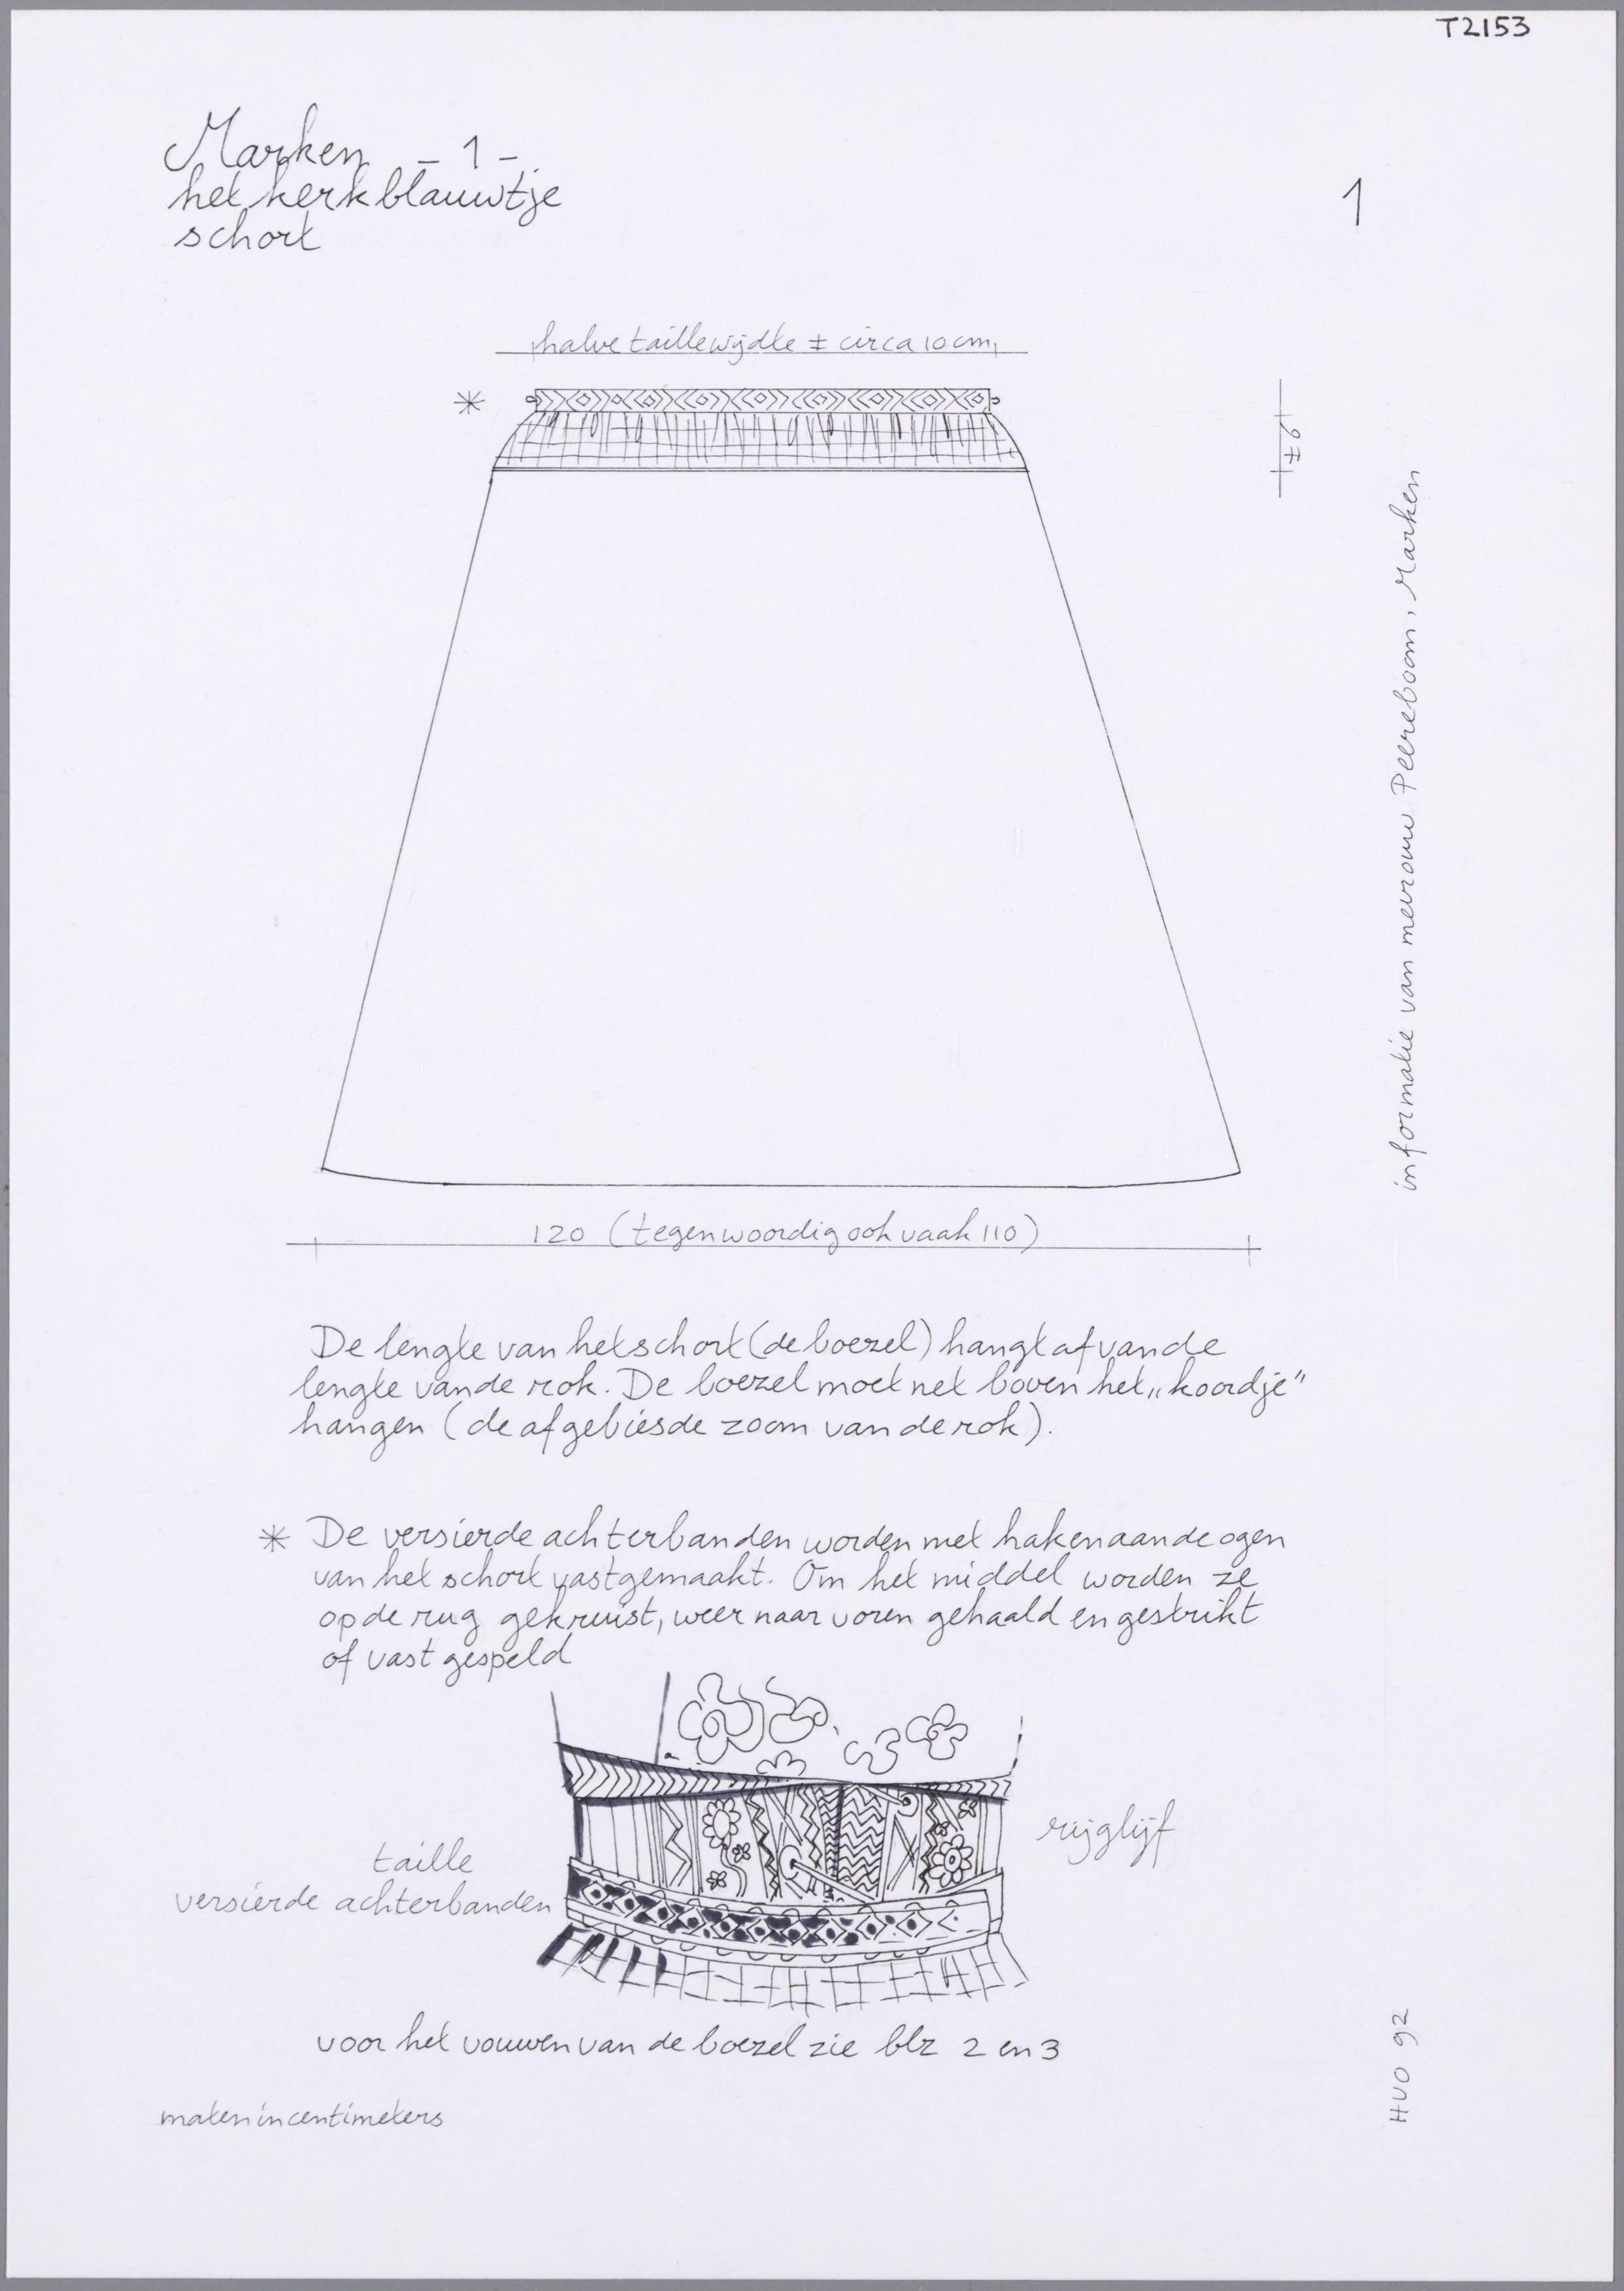 T2153
Marken - 1 -
het kerkblauwtje
schort
1
halve taillewijdte ± circa 10 cm
*
± 6
informatie van mevrouw Peereboom, Marken
120 (tegenwoordig ook vaak 110)
De lengte van het schort (de boezel) hangt af van de
lengte van de rok. De boezel moet net boven het „koordje"
hangen (de afgebiesde zoom van de rok).
* De versierde achterbanden worden met haken aan de ogen
van het schort vastgemaakt. Om het middel worden ze
op de rug gekruist, weer naar voren gehaald en gestrikt
of vast gespeld
rijglijf
taille
versierde achterbanden
voor het vouwen van de boezel zie blz 2 en 3
HVO 92
maten in centimeters